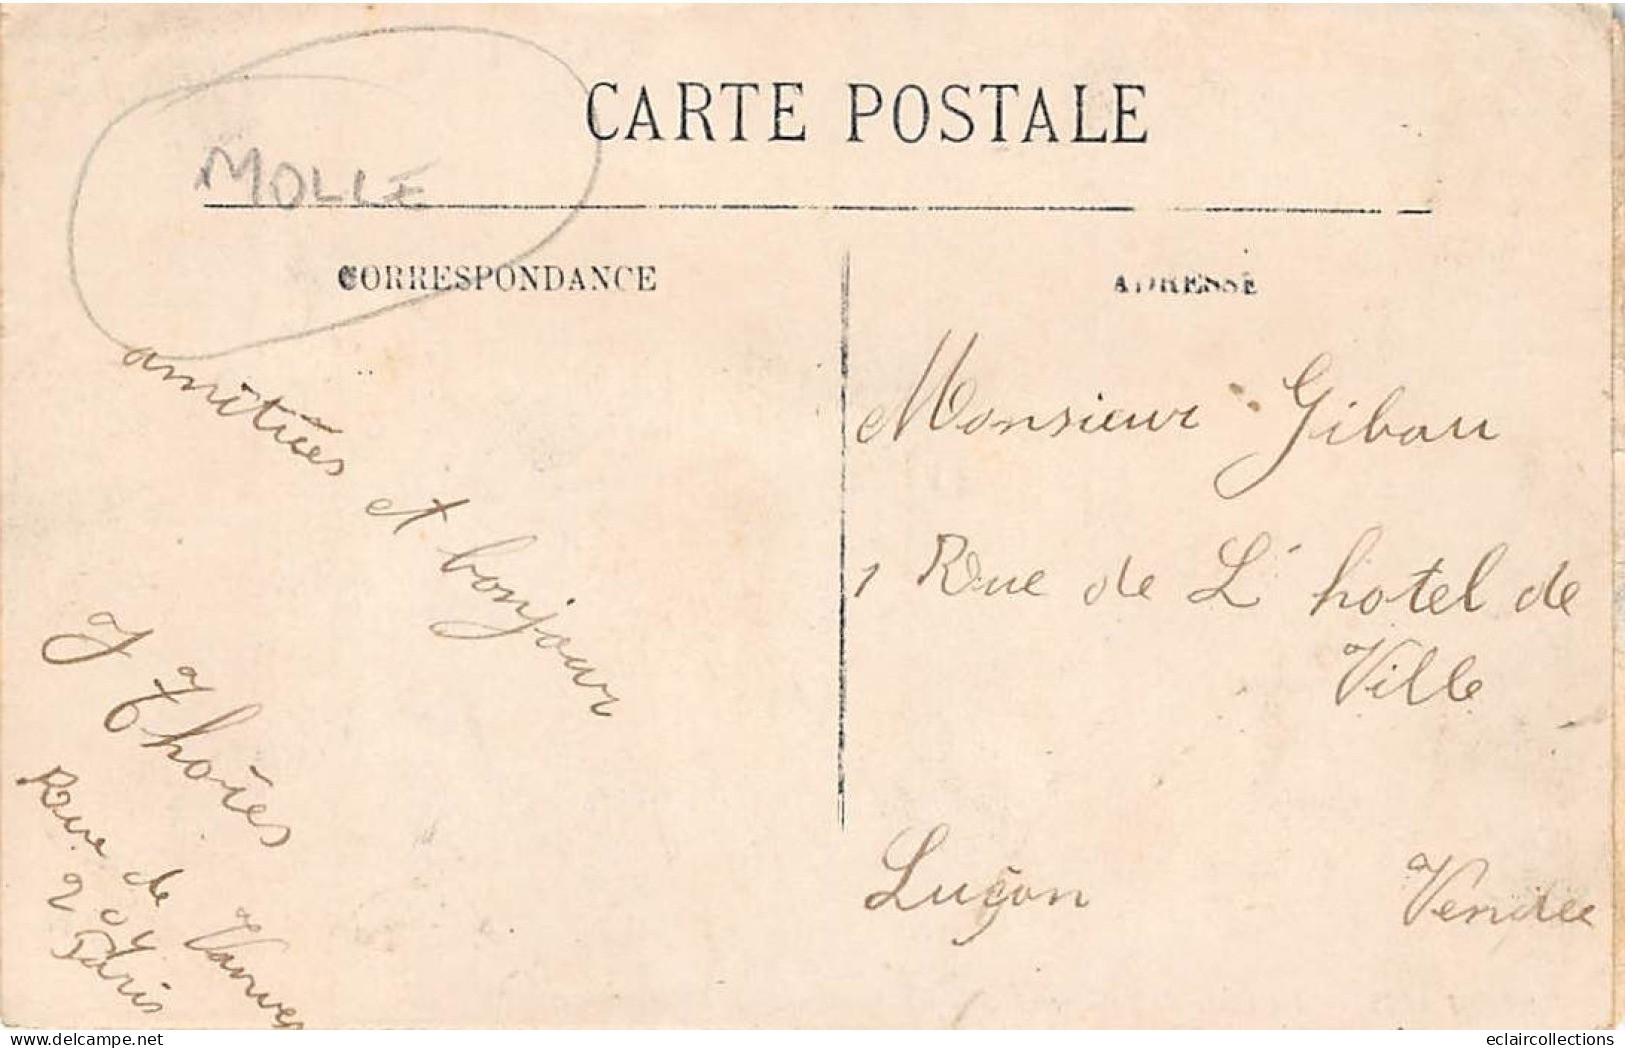 CARTE POSTALE
MOLLE
CORRESPONDANCE
amitiés
et bonjour
J Thoïes
Rue de Vanves
Paris
ADRESSE
Monsieur Gibau
1 Rue de L'hotel de
Ville
Luçon Vendée
eclaircollections